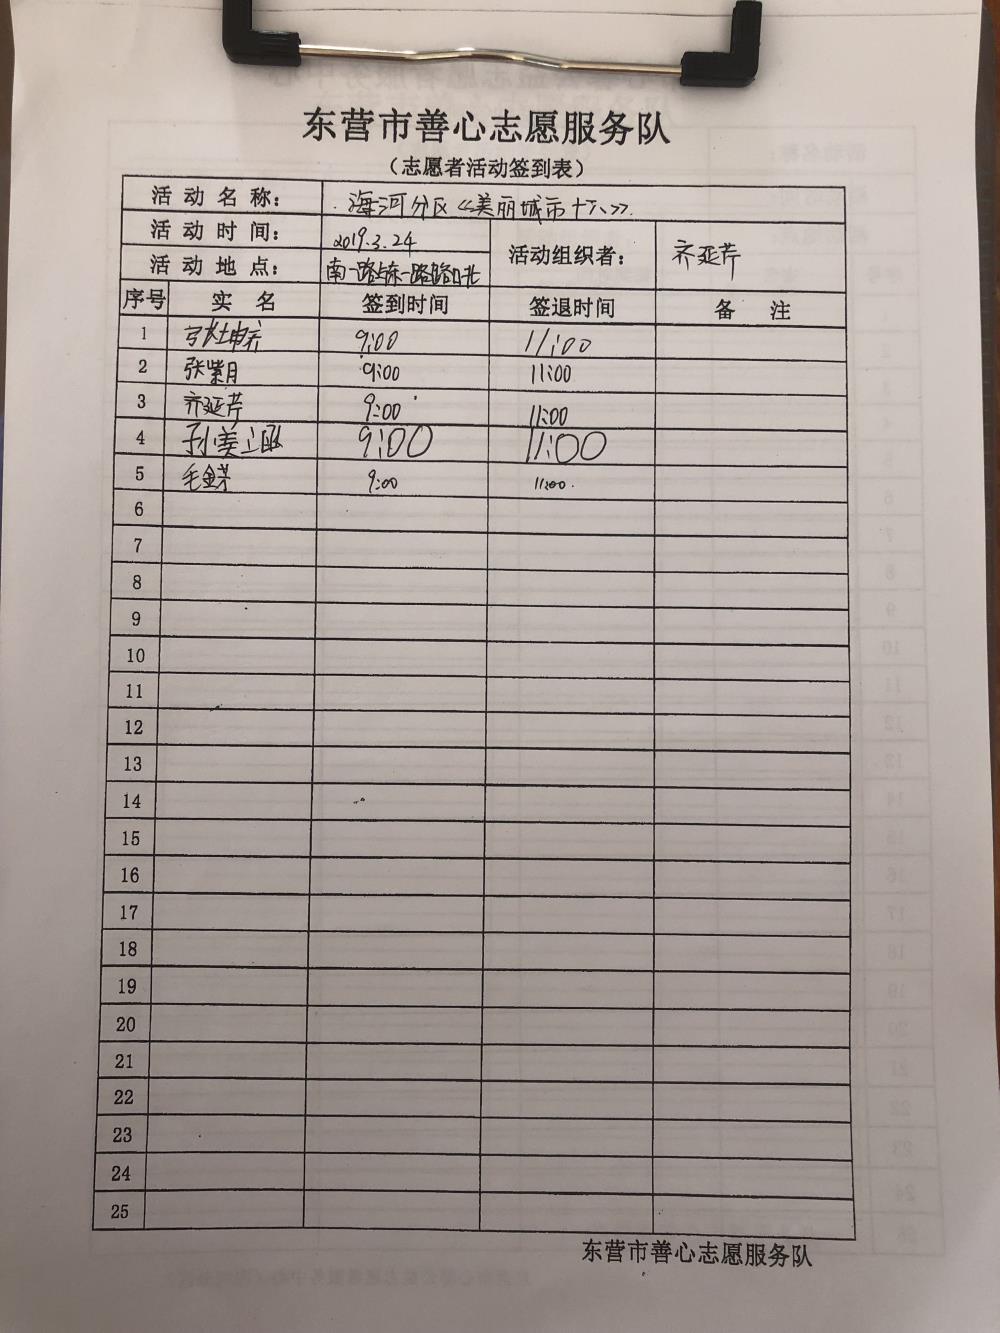 东营市善心志愿服务队
（志愿者活动签到表）
活动名称： 海河分区《美丽城市十六》
活动时间： 2019.3.24 活动组织者： 齐延芹
活动地点： 南一路与东一路路口北
序号 实名 签到时间 签退时间 备注
1 9:00 11:00
2 张紫月 9:00 11:00
3 齐延芹 9:00 11:00
4 孙美 9:00 11:00
5 毛金 9:00 11:00
6
7
8
9
10
11
12
13
14
15
16
17
18
19
20
21
22
23
24
25
东营市善心志愿服务队